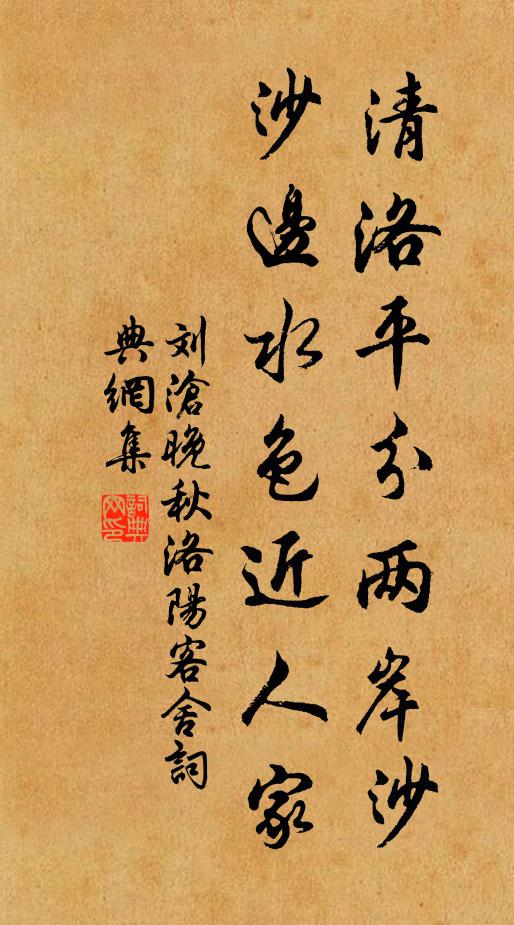 清洛平分两岸沙
沙邊水色近人家
刘滄晚秋洛陽客舍詞
典網集
詞典網印